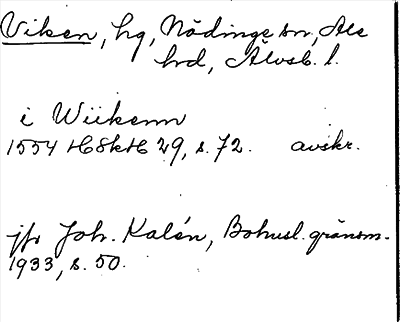 Viken, hg, Nödinge sn, Ale
hd, Älvsb. l.
i Wiikenn
1554 HSkH 29, s. 72. avskr.
jfr Joh. Kalén, Bohusl. gränsm.
1933, s. 50.